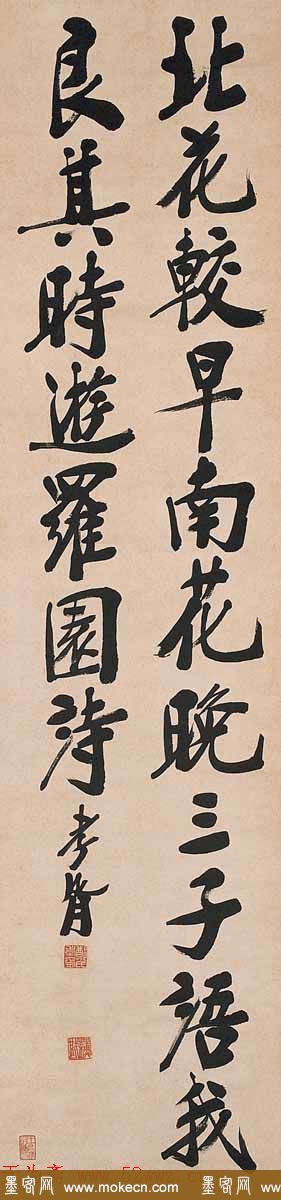 北花較早南花晚三子語我
良其時遊羅園詩 孝胥
墨客网 www.mokecn.com 墨客网